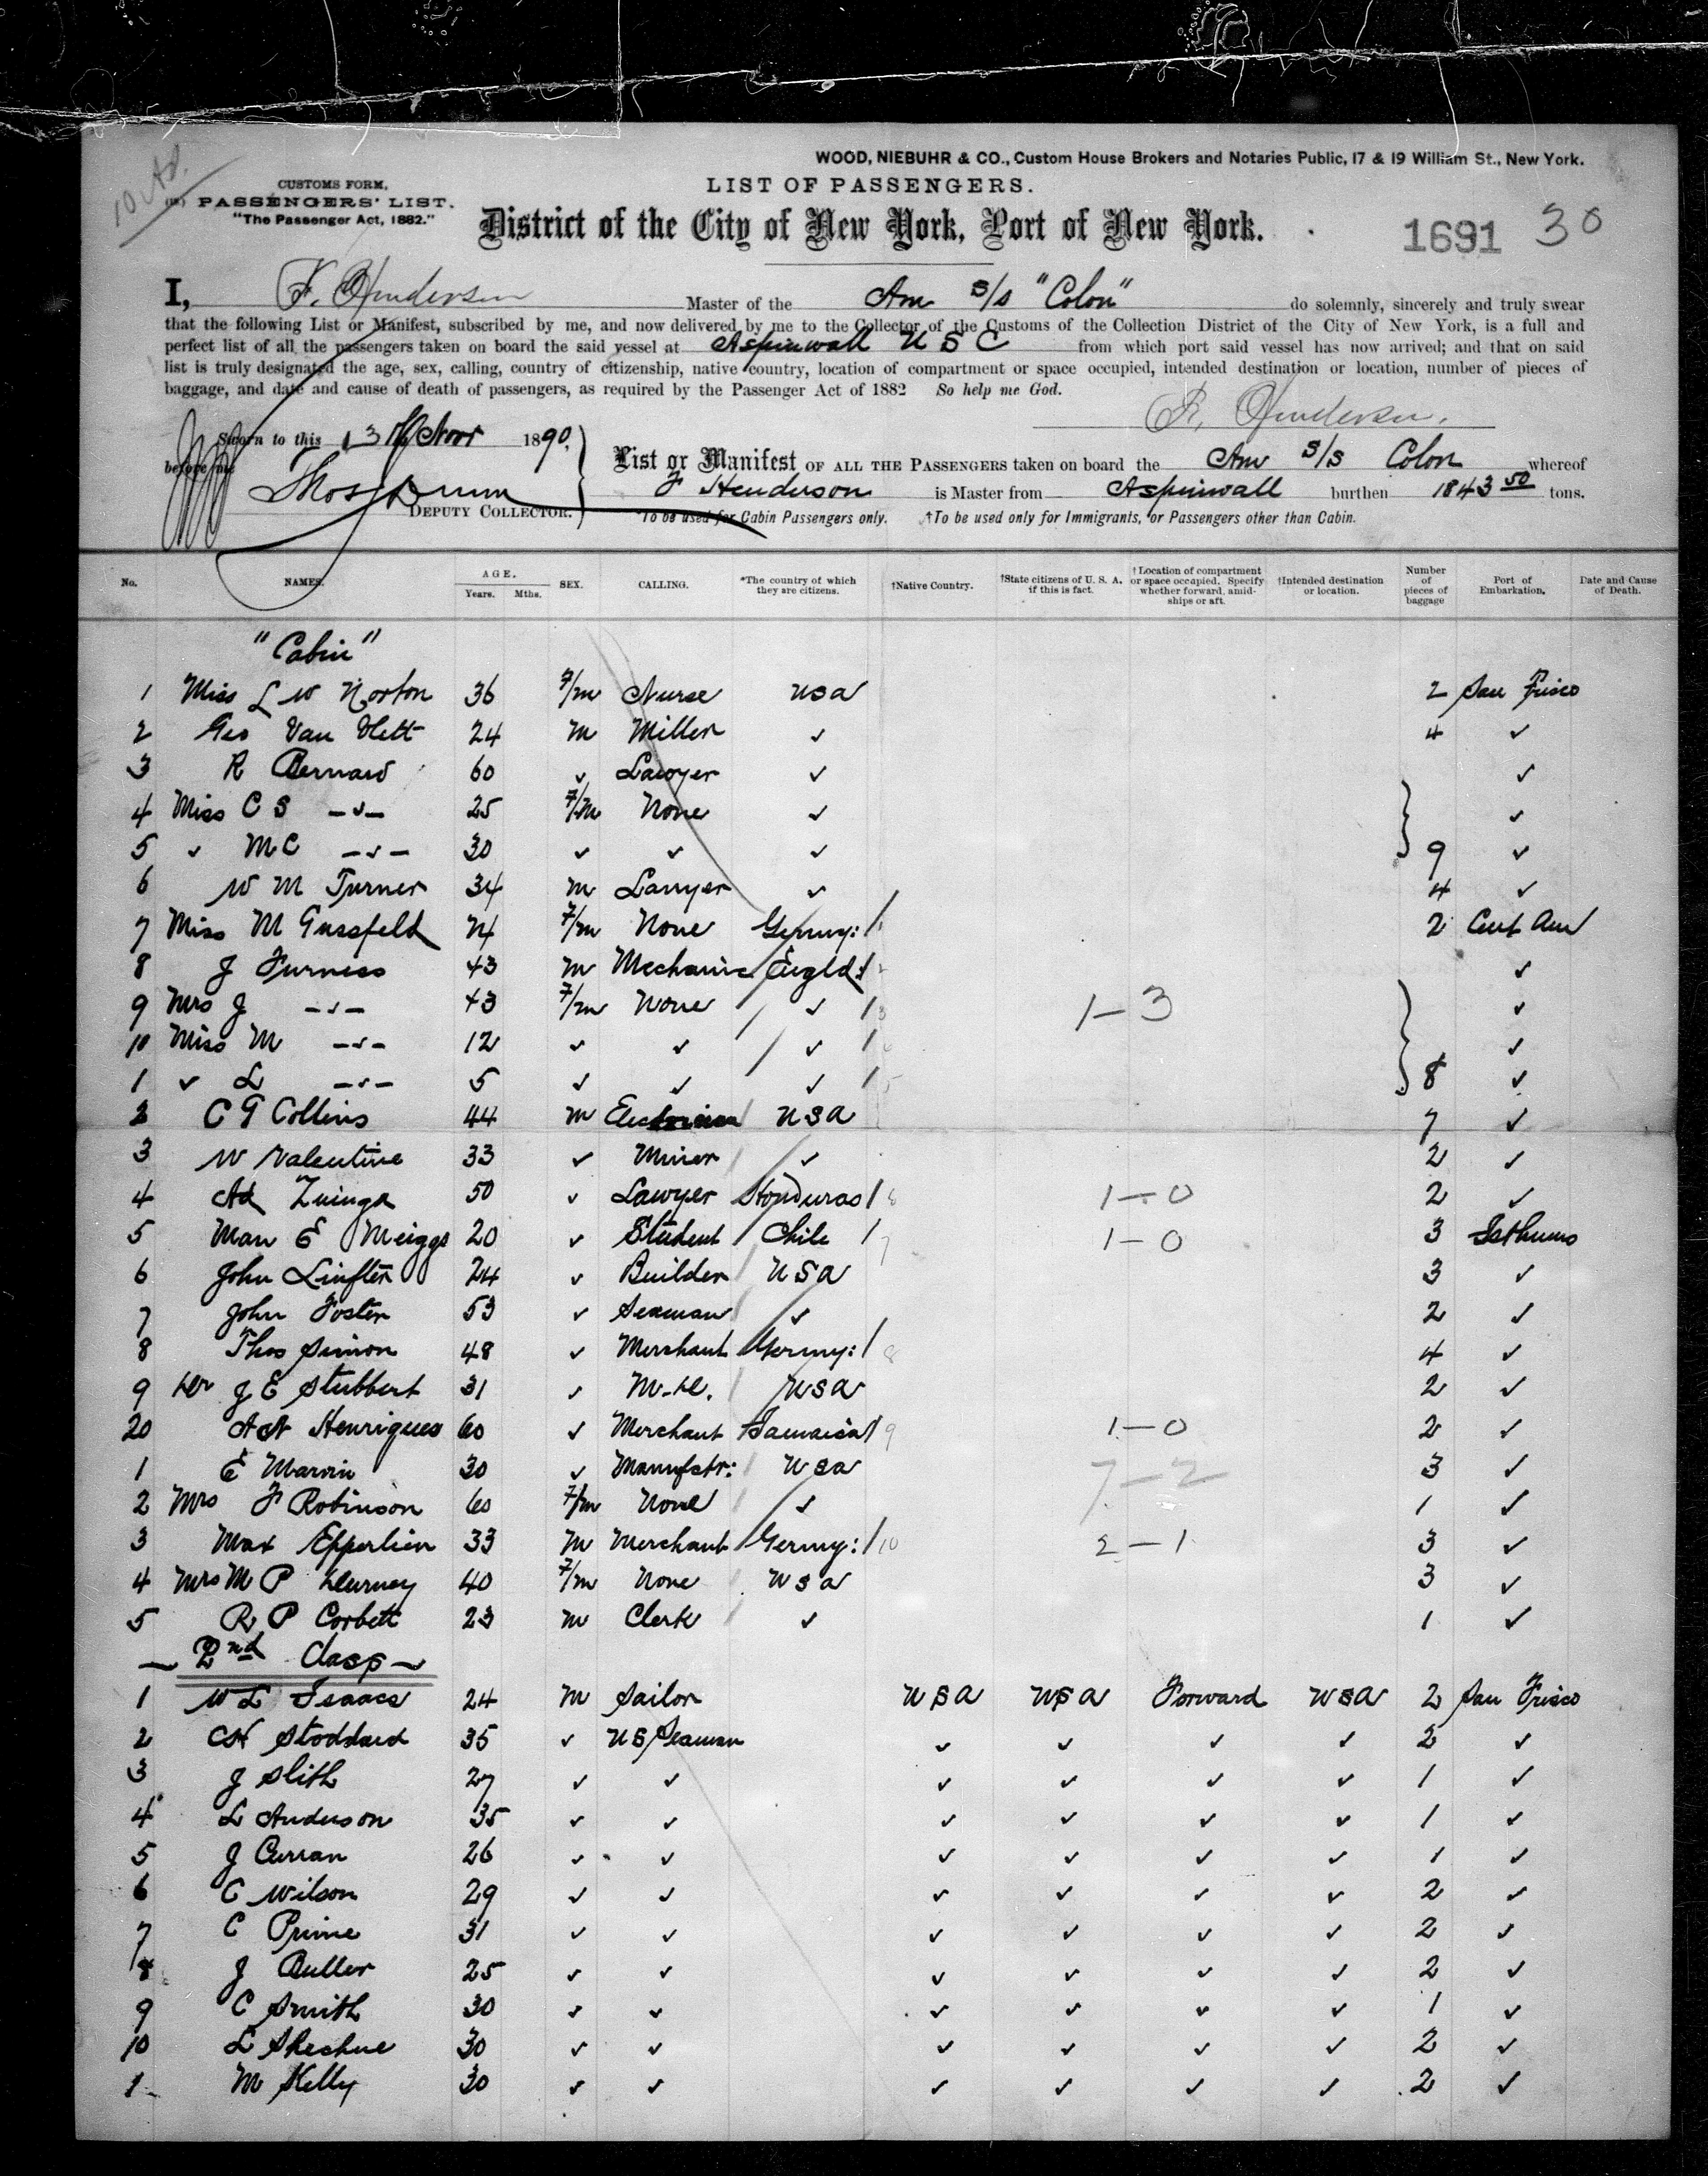 WOOD, NIEBUHR & CO., Custom House Brokers and Notaries Public, 17 & 19 William St., New York.
CUSTOMS FORM,
PASSENGERS' LIST.
"The Passenger Act, 1882."
LIST OF PASSENGERS.
District of the City of New York, Port of New York.
1691 30
I, F. Henderson Master of the Am S/s "Colon" do solemnly, sincerely and truly swear
that the following List or Manifest, subscribed by me, and now delivered by me to the Collector of the Customs of the Collection District of the City of New York, is a full and
perfect list of all the passengers taken on board the said vessel at Aspinwall U S C from which port said vessel has now arrived; and that on said
list is truly designated the age, sex, calling, country of citizenship, native country, location of compartment or space occupied, intended destination or location, number of pieces of
baggage, and date and cause of death of passengers, as required by the Passenger Act of 1882 So help me God.
F. Henderson.
Sworn to this 13th Novr 1890.
before me
DEPUTY COLLECTOR.
List or Manifest OF ALL THE PASSENGERS taken on board the Am S/S Colon whereof
F Henderson is Master from Aspinwall burthen 1843 50 tons.
*To be used for Cabin Passengers only. †To be used only for Immigrants, or Passengers other than Cabin.
No. NAMES. AGE. Years. Mths. SEX. CALLING. *The country of which they are citizens. †Native Country. †State citizens of U. S. A. if this is fact. †Location of compartment or space occupied. Specify whether forward, amidships or aft. †Intended destination or location. Number of pieces of baggage Port of Embarkation, Date and Cause of Death.
"Cabin"
1 Miss L W Norton 36 F/m Nurse USA 2 San Frisco
2 Geo Van Vlett 24 m Miller ✓ 4 ✓
3 R Bernard 60 ✓ Lawyer ✓ ✓
4 Miss C S -✓- 25 F/m None ✓ ✓
5 ✓ M C -✓- 30 ✓ ✓ ✓ 9 ✓
6 W M Turner 34 m Lawyer ✓ 4 ✓
7 Miss M Gussfeld 24 F/m None Germy: 1 2 Cent Am
8 J Furness 43 m Mechanic Engld: 1 ✓
9 Mrs J -✓- 43 F/m None ✓ 1 3 1-3 ✓
10 Miss M -✓- 12 ✓ ✓ ✓ 1 ✓
1 ✓ L -✓- 5 ✓ ✓ ✓ 1 5 8 ✓
2 C G Collins 44 m Electrician USA 7 ✓
3 W Valentine 33 ✓ Miner ✓ 2 ✓
4 Ad Zuinga 50 ✓ Lawyer Honduras 1 6 1-0 2 ✓
5 Man E Meiggs 20 ✓ Student Chile 1 7 1-0 3 Isthmus
6 John Linfter 24 ✓ Builder USA 3 ✓
7 John Foster 53 ✓ Seaman ✓ 2 ✓
8 Thos Simon 48 ✓ Merchant Germy: 1 8 4 ✓
9 Dr J E Stubbert 31 ✓ M.D. USA 2 ✓
20 A N Henriques 60 ✓ Merchant Jamaica 1 9 1-0 2 ✓
1 E Marvin 30 ✓ Manufctr: USA 7-2 3 ✓
2 Mrs F Robinson 60 F/m None ✓ 1 ✓
3 Max Epperlien 33 m Merchant Germy: 1 10 2-1 3 ✓
4 Mrs M P Durney 40 F/m None USA 3 ✓
5 R P Corbett 23 m Clerk ✓ 1 ✓
2nd Class
1 W L Isaacs 24 m Sailor USA USA Forward USA 2 San Frisco
2 C H Stoddard 35 ✓ U S Seaman ✓ ✓ ✓ ✓ 2 ✓
3 J Slith 27 ✓ ✓ ✓ ✓ ✓ ✓ 1 ✓
4 L Anderson 35 ✓ ✓ ✓ ✓ ✓ ✓ 1 ✓
5 J Curran 26 ✓ ✓ ✓ ✓ ✓ ✓ 1 ✓
6 C Wilson 29 ✓ ✓ ✓ ✓ ✓ ✓ 2 ✓
7 C Prime 31 ✓ ✓ ✓ ✓ ✓ ✓ 2 ✓
8 J Buller 25 ✓ ✓ ✓ ✓ ✓ ✓ 2 ✓
9 C Smith 30 ✓ ✓ ✓ ✓ ✓ ✓ 1 ✓
10 L 30 ✓ ✓ ✓ ✓ ✓ ✓ 2 ✓
1 M Kelly 30 ✓ ✓ ✓ ✓ ✓ ✓ 2 ✓